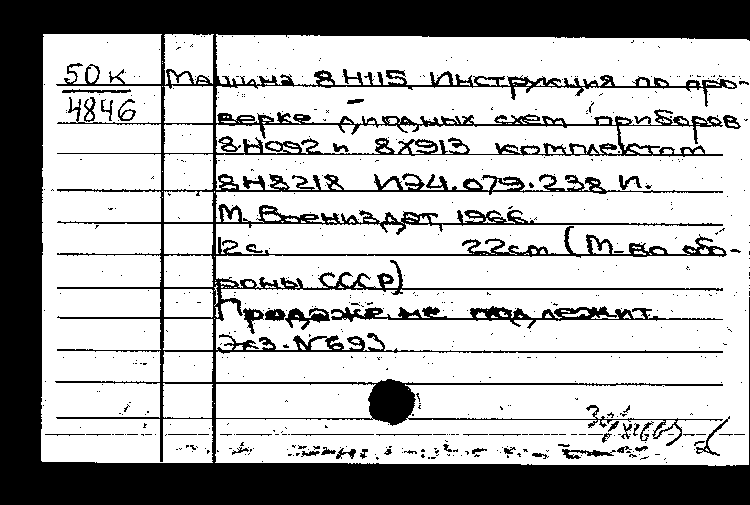 50 к
4846
Машина 8Н115. Инструкция по про-
верке диодных схем приборов
8Н092 и 8Х913 комплектом
8Н8218 ИЭ4.079.238 И.
М, Воениздат, 1966.
12 с. 22 см (М-во обо-
роны СССР)
Продаже не подлежит.
Экз. N 693.